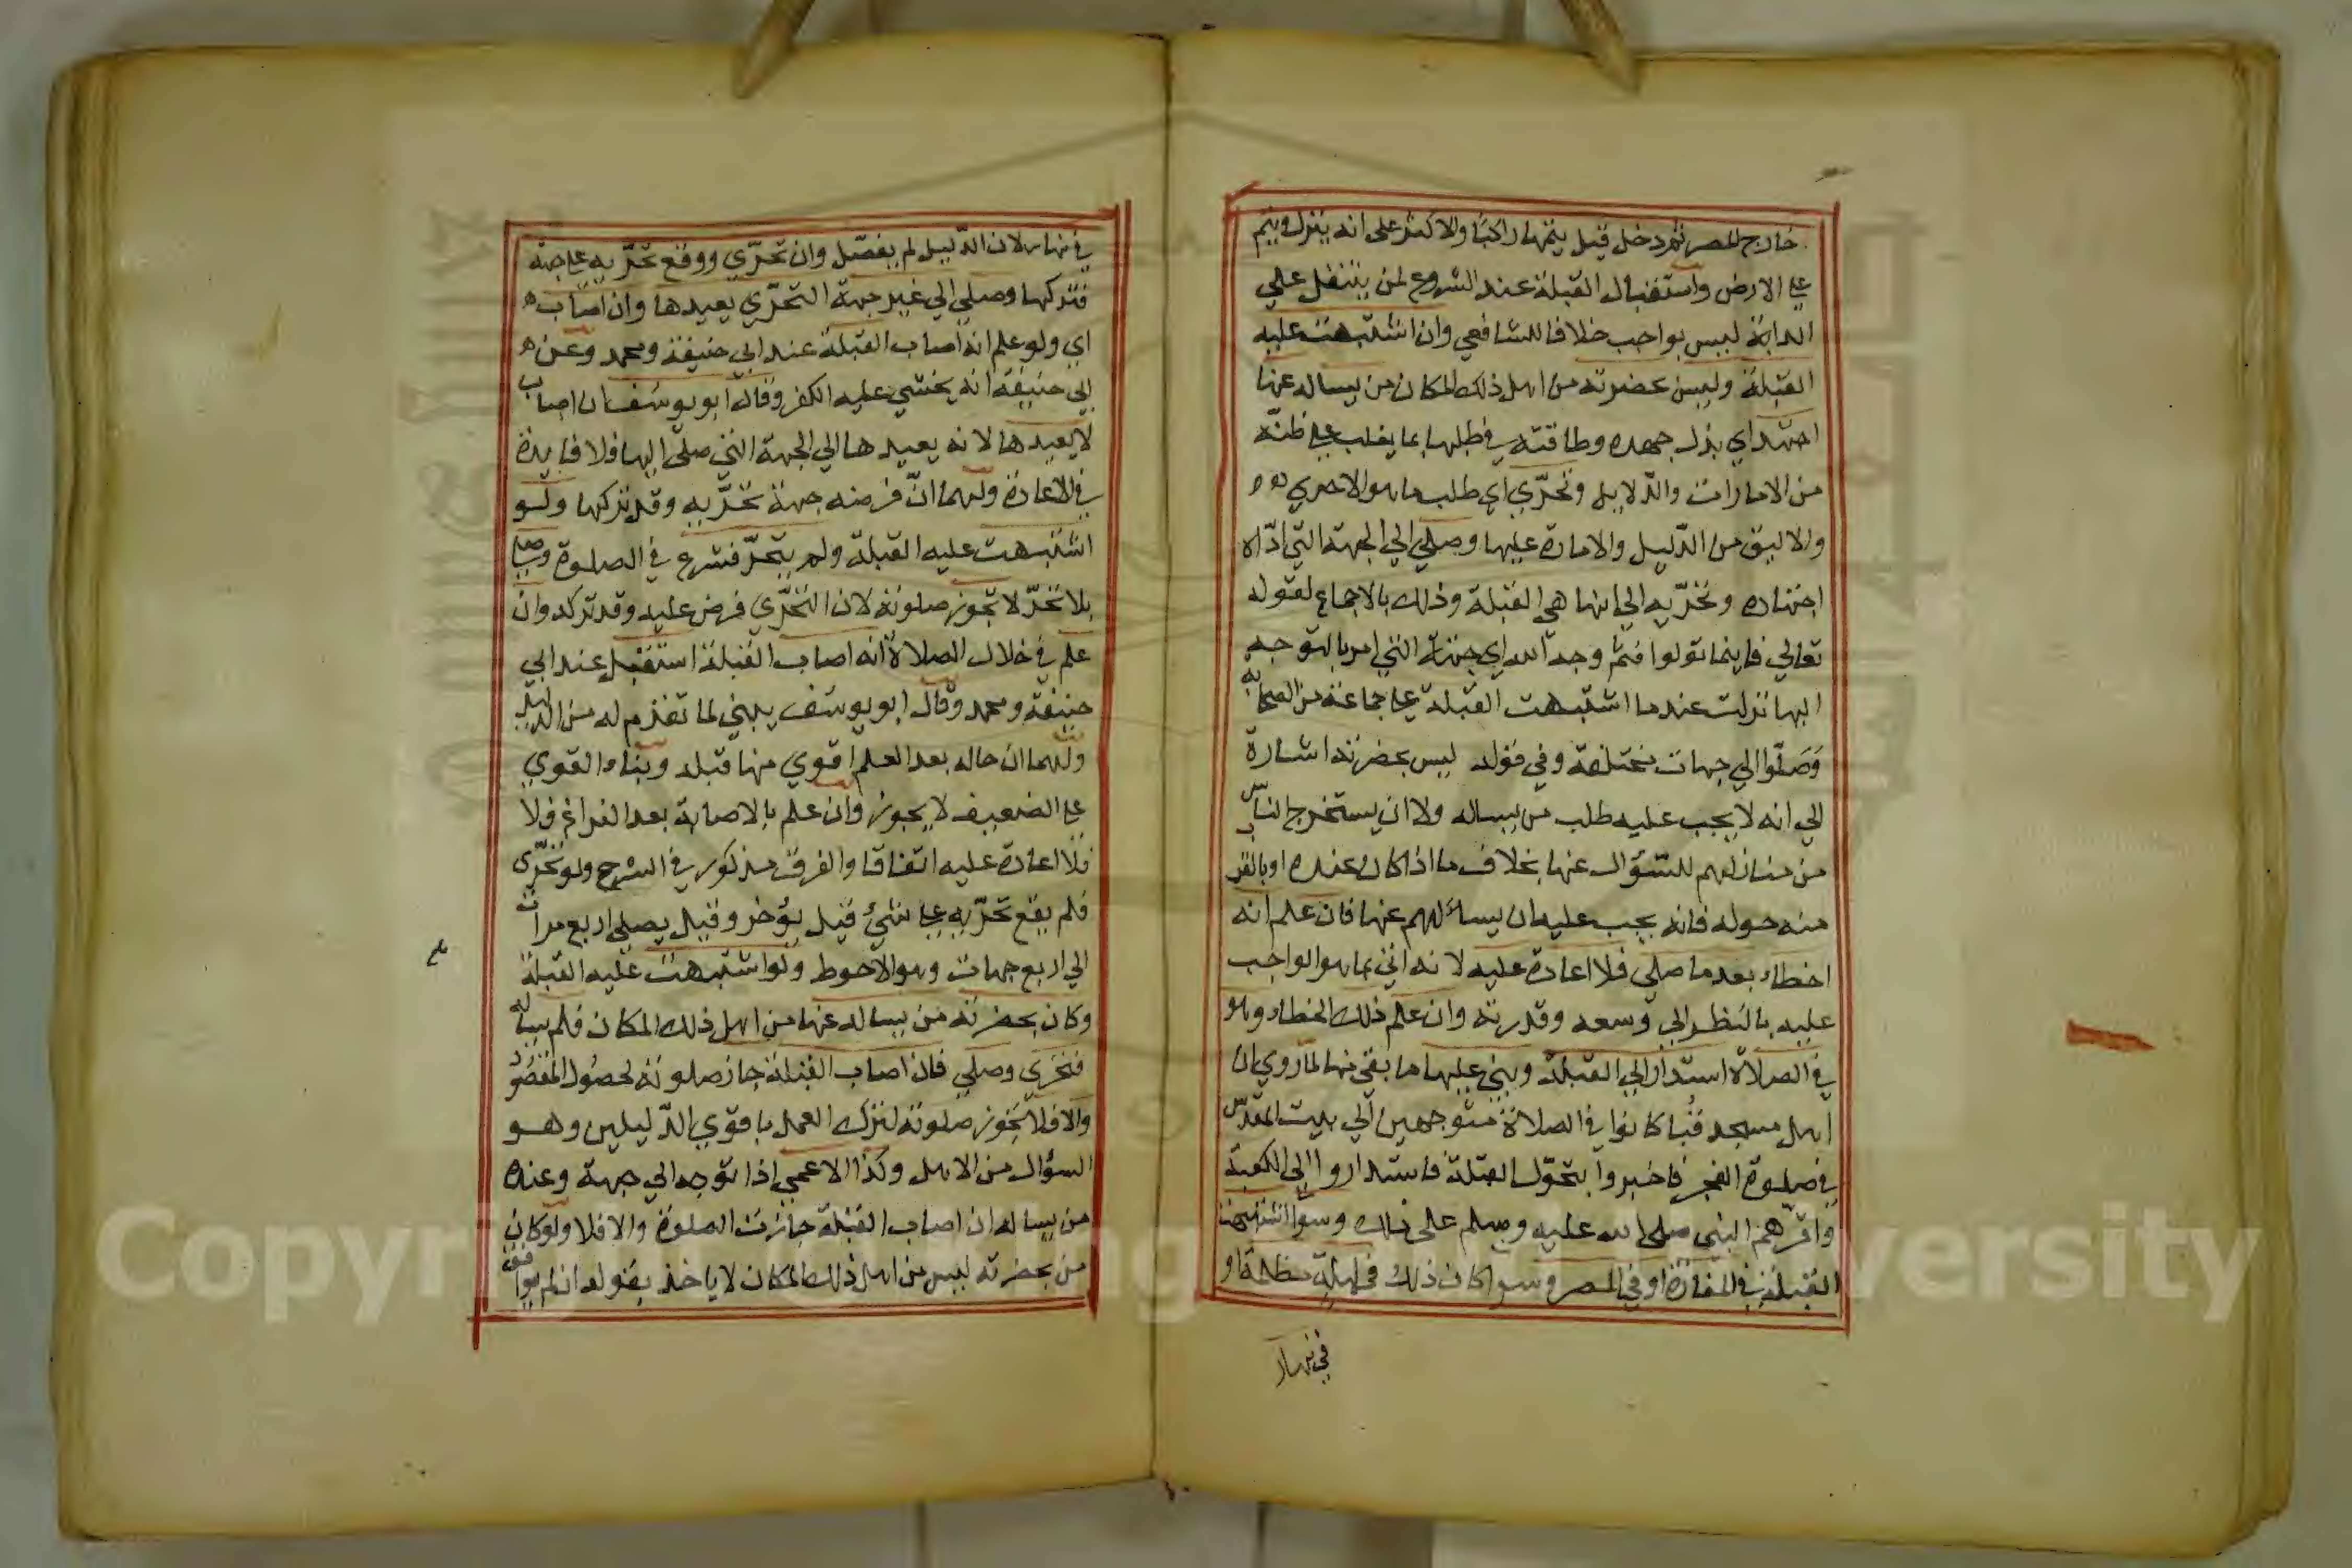 خارج المصر ثم دخل قيل يتمها راكبا والاكثر على انه ينزل ويتم
على الارض واستقبال القبلة عند الشروع لمن يتنفل على
الدابة ليس بواجب خلافا للشافعي وان اشتبهت عليه
القبلة وليس بحضرته من اهل ذلك المكان من يساله عنها
اجتهد اي بذل جهده وطاقته في طلبها بما يغلب على ظنّه
من الامارات والدّلايل وتحرّي اي طلب ما هو الاحري
والاليق من الدّليل والامارة عليها وصلي الي الجهة التي ادّاه
اجتهاده وتحرّيه الي انها هي القبلة وذلك بالاجماع لقوله
تعالي فاينما تولوا فثمّ وجه الله اي جهته التي امر بالتوجه
اليها نزلت عندما اشتبهت القبلة على جماعة من الصحابة
وَصَلّوا الي جهات مختلفة وفي قوله ليس بحضرته اشارة
الي انه لا يجب عليه طلب من يساله ولا ان يستخرج الناس
من منازلهم للسّؤال عنها بخلاف ما اذا كان عنده او بالقرب
منه حوله فانه يجب عليه ان يسألهم عنها فان علم انه
اخطاء بعد ما صلي فلا اعادة عليه لانه اتي بما هو الواجب
عليه بالنظر الي وسعه وقدرته وان علم ذلك الخطاء وهو
في الصلاة استدار الي القبلة وبني عليها ما بقي منها لما روي ان
اهل مسجد قُبا كانوا في الصلاة متوجهين الي بيت المقدّس
في صلوة الفجر فاخبروا بتحوّل القبلة فاستداروا الي الكعبة
واقرّهم النبي صلى الله عليه وسلم على ذلك وسوا اشتبهت
القبلة في المفازة او في المصر وسوا كان ذلك في ليلة مظلمة او
في نهار
في نهار لان الدّليل لم يفصّل وان تحرّي ووقع تحرّيه على جهة
فتركها وصلي الي غير جهة التحرّي يعيدها وان اصاب
اي ولو علم انه اصاب القبلة عند ابي حنيفة ومحمد وعن
ابي حنيفة انه يخشي عليه الكفر وقال ابو يوسف ان اصاب
لا يعيدها لانه يعيدها الي الجهة التي صلّى اليها فلا فايدة
في الاعادة ولهما انّ فرضه جهة تحرّيه وقد تركها ولو
اشتبهت عليه القبلة ولم يتحرّ فشرع في الصلوة وصلي
بلا تحرّ لا تجوز صلوته لان التحرّي فرض عليه وقد تركه وان
علم في خلال الصلاة انه اصاب القبلة استقبل عند ابي
حنيفة ومحمد وقال ابو يوسف يبني لما تقدم له من الدليل
ولهما ان حاله بعد العلم اقوي منها قبله وبناء القوي
على الضعيف لا يجوز وان علم بالاصابة بعد الفراغ فلا
فلا اعادة عليه اتفاقا والفرق مذكور في الشرح ولو تحرّى
فلم يقع تحرّيه على شيءٍ قيل يؤخر وقيل يصلي اربع مرات
الي اربع جهات وهو الاحوط ولو اشتبهت عليه القبلة
وكان بحضرته من يساله عنها من اهل ذلك المكان فلم يساله
فتحرّي وصلي فان اصاب القبلة جاز صلوته لحصُول المقصُود
والا فلا تجوز صلوته لترك العمل باقوي الدّليلين وهو
السؤال من الاهل وكذا الاعمي اذا توجه الي جهة وعنده
من يساله ان اصاب القبلة جازت الصلوة والا فلا ولو كان
من بحضرته ليس من اهل ذلك المكان لا ياخذ بقوله ان لم يوافق